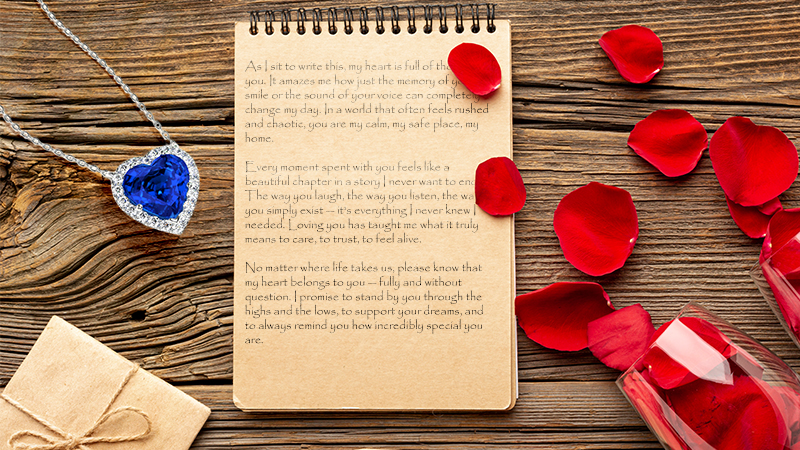 As I sit to write this, my heart is full of
you. It amazes me how just the memory of
smile or the sound of your voice can
change my day. In a world that often feels rushed
and chaotic, you are my calm, my safe place, my
home.
Every moment spent with you feels like a
beautiful chapter in a story I never want to
The way you laugh, the way you listen, the
you simply exist — it's everything I never knew I
needed. Loving you has taught me what it truly
means to care, to trust, to feel alive.
No matter where life takes us, please know that
my heart belongs to you — fully and without
question. I promise to stand by you through the
highs and the lows, to support your dreams, and
to always remind you how incredibly special you
are.